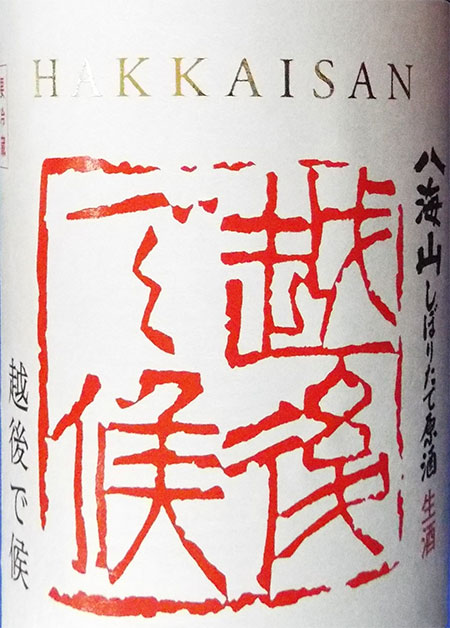 HAKKAISAN
要冷蔵
八海山しぼりたて原酒 生酒
越後
で候
越後で候